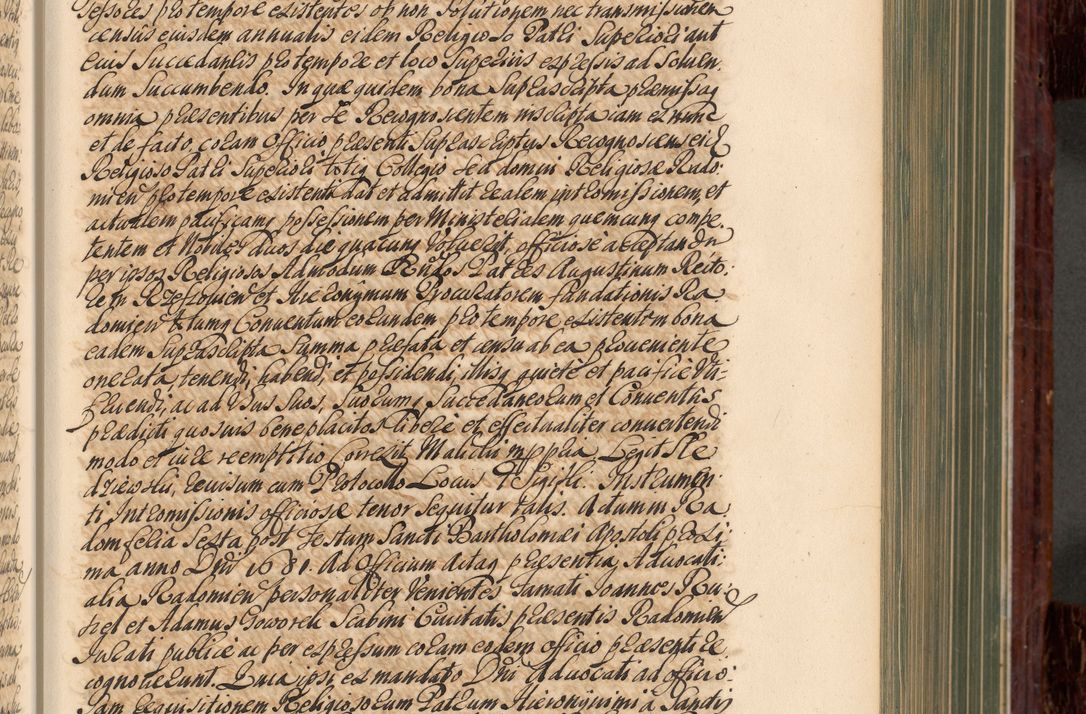 sessores pro tempore existentes ob non solutionem nec transmissionem
census eiusdem annualis eidem Religioso Patri Superiori aut
eius Succedaneis pro tempore et loco Superius expressis ad Solven
dum Succumbendo. In quæ quidem bona Suprascripta præmissaq
omnia præsentibus per se Recognoscentem inscripta iam ex nunc
et de facto, coram Officio præsenti Suprascriptus Recognoscens eid
Religioso Patri Superiori totiq Collegio Sea domini Religiosæ Rado
mien pro tempore existenti dat et admittit realem intromissionem, et
actualem pacificamq possessionem per Ministerialem quemcunq compe
tentem et Nobiles duos die quacunq voluerit, officiose acceptan Dn
per ipsos Religiosos Admodum Rndos Patres Augustinum Recto
rem Rzeszovien et Hieronymum Procuratorem fundationis Ra
domien totumq Conventum eorundem pro tempore existentem bona
eadem Suprascripta Summa præfata et censu ab ea proveniente
onerata, tenendi, habendi, et possidendi illisq quiete et pacifice Ut
fruendi, ac ad Usus Suos, Suorumq Succedaneorum et Conventus
prædicti quosuis beneplacitos libere et effectualiter convertendi
modo et iure reemptitio Correxit Malicki mppria. Legit Sle
dziewski, revisum cum Protocollo Locus Sigilli. Instrumen
ti Intromissionis officiosæ tenor Sequitur talis. Actum in Ra
dom feria Sexta post Festum Sancti Bartholomæi Apostoli proxi
ma anno Dni 1681. Ad Officium Actaq præsentia Advocati
alia Radomien personaliter Venientes famati Joannes Ru
fiel et Adamus Goworek Scabini Civitatis præsentis Radomien
Jurati publice ac per expressum coram eodem officio præsenti re
cognoverunt. Quia ipsi ex mandato Dni Advocati ad officio
sam requisitionem Religiosorum Patrum Hieronymi à Sancti